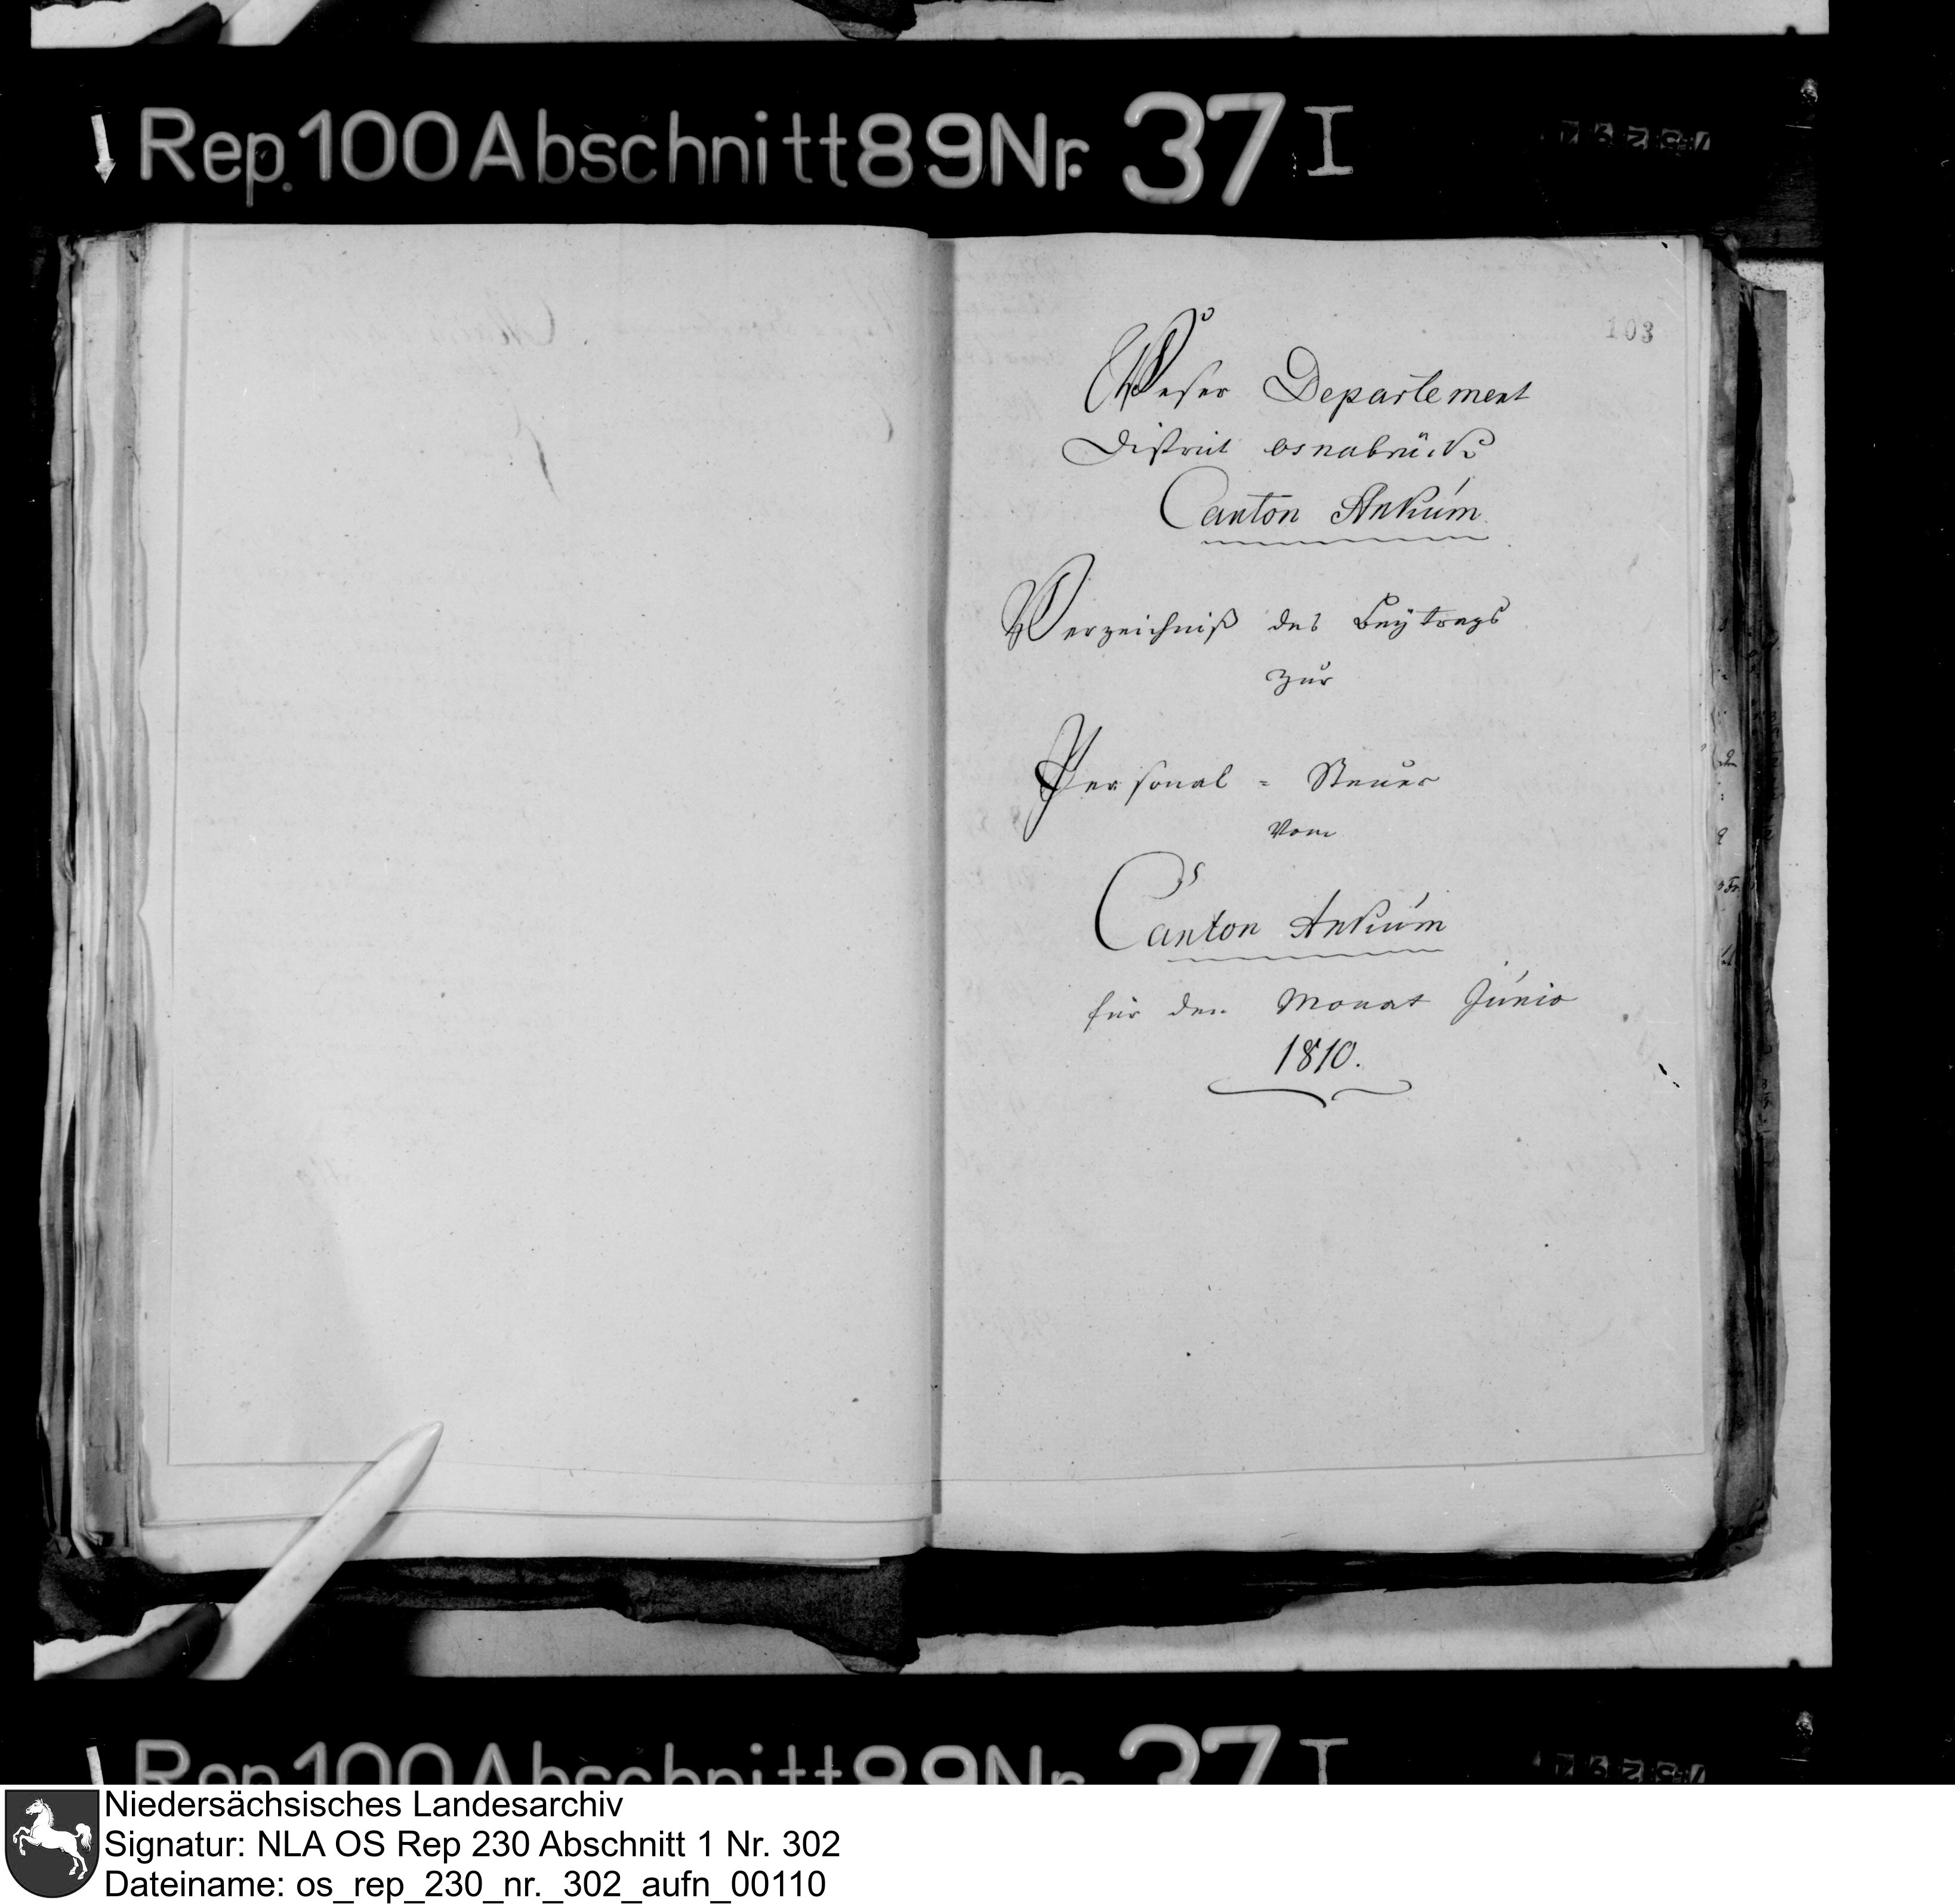 Rep. 100 Abschnitt 89 Nr. 37 I
103
Weser Departement
District Osnabrück
Canton Ankum
Verzeichniß des Beytrags
zur
Personal = Steuer
vom
Canton Ankum
für den Monat Junio
1810.
Rep. 100 Abschnitt 89 Nr. 37 I
Niedersächsisches Landesarchiv
Signatur: NLA OS Rep 230 Abschnitt 1 Nr. 302
Dateiname: os_rep_230_nr._302_aufn_00110